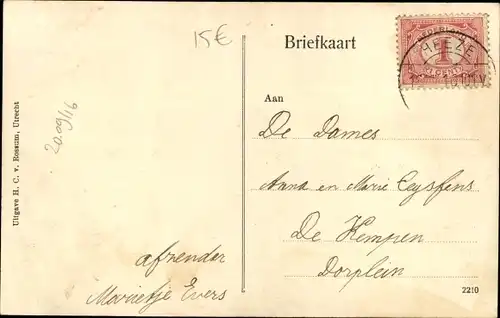 15€
Briefkaart
NEDERLAND
1
CENT
HEEZE
Aan
De Dames
Anna en Marie Ceysfens
De Kempen
Dorplein
afzender
Marietje Evers
20.09/16
Uitgave H. C. v. Rossum, Utrecht
2210